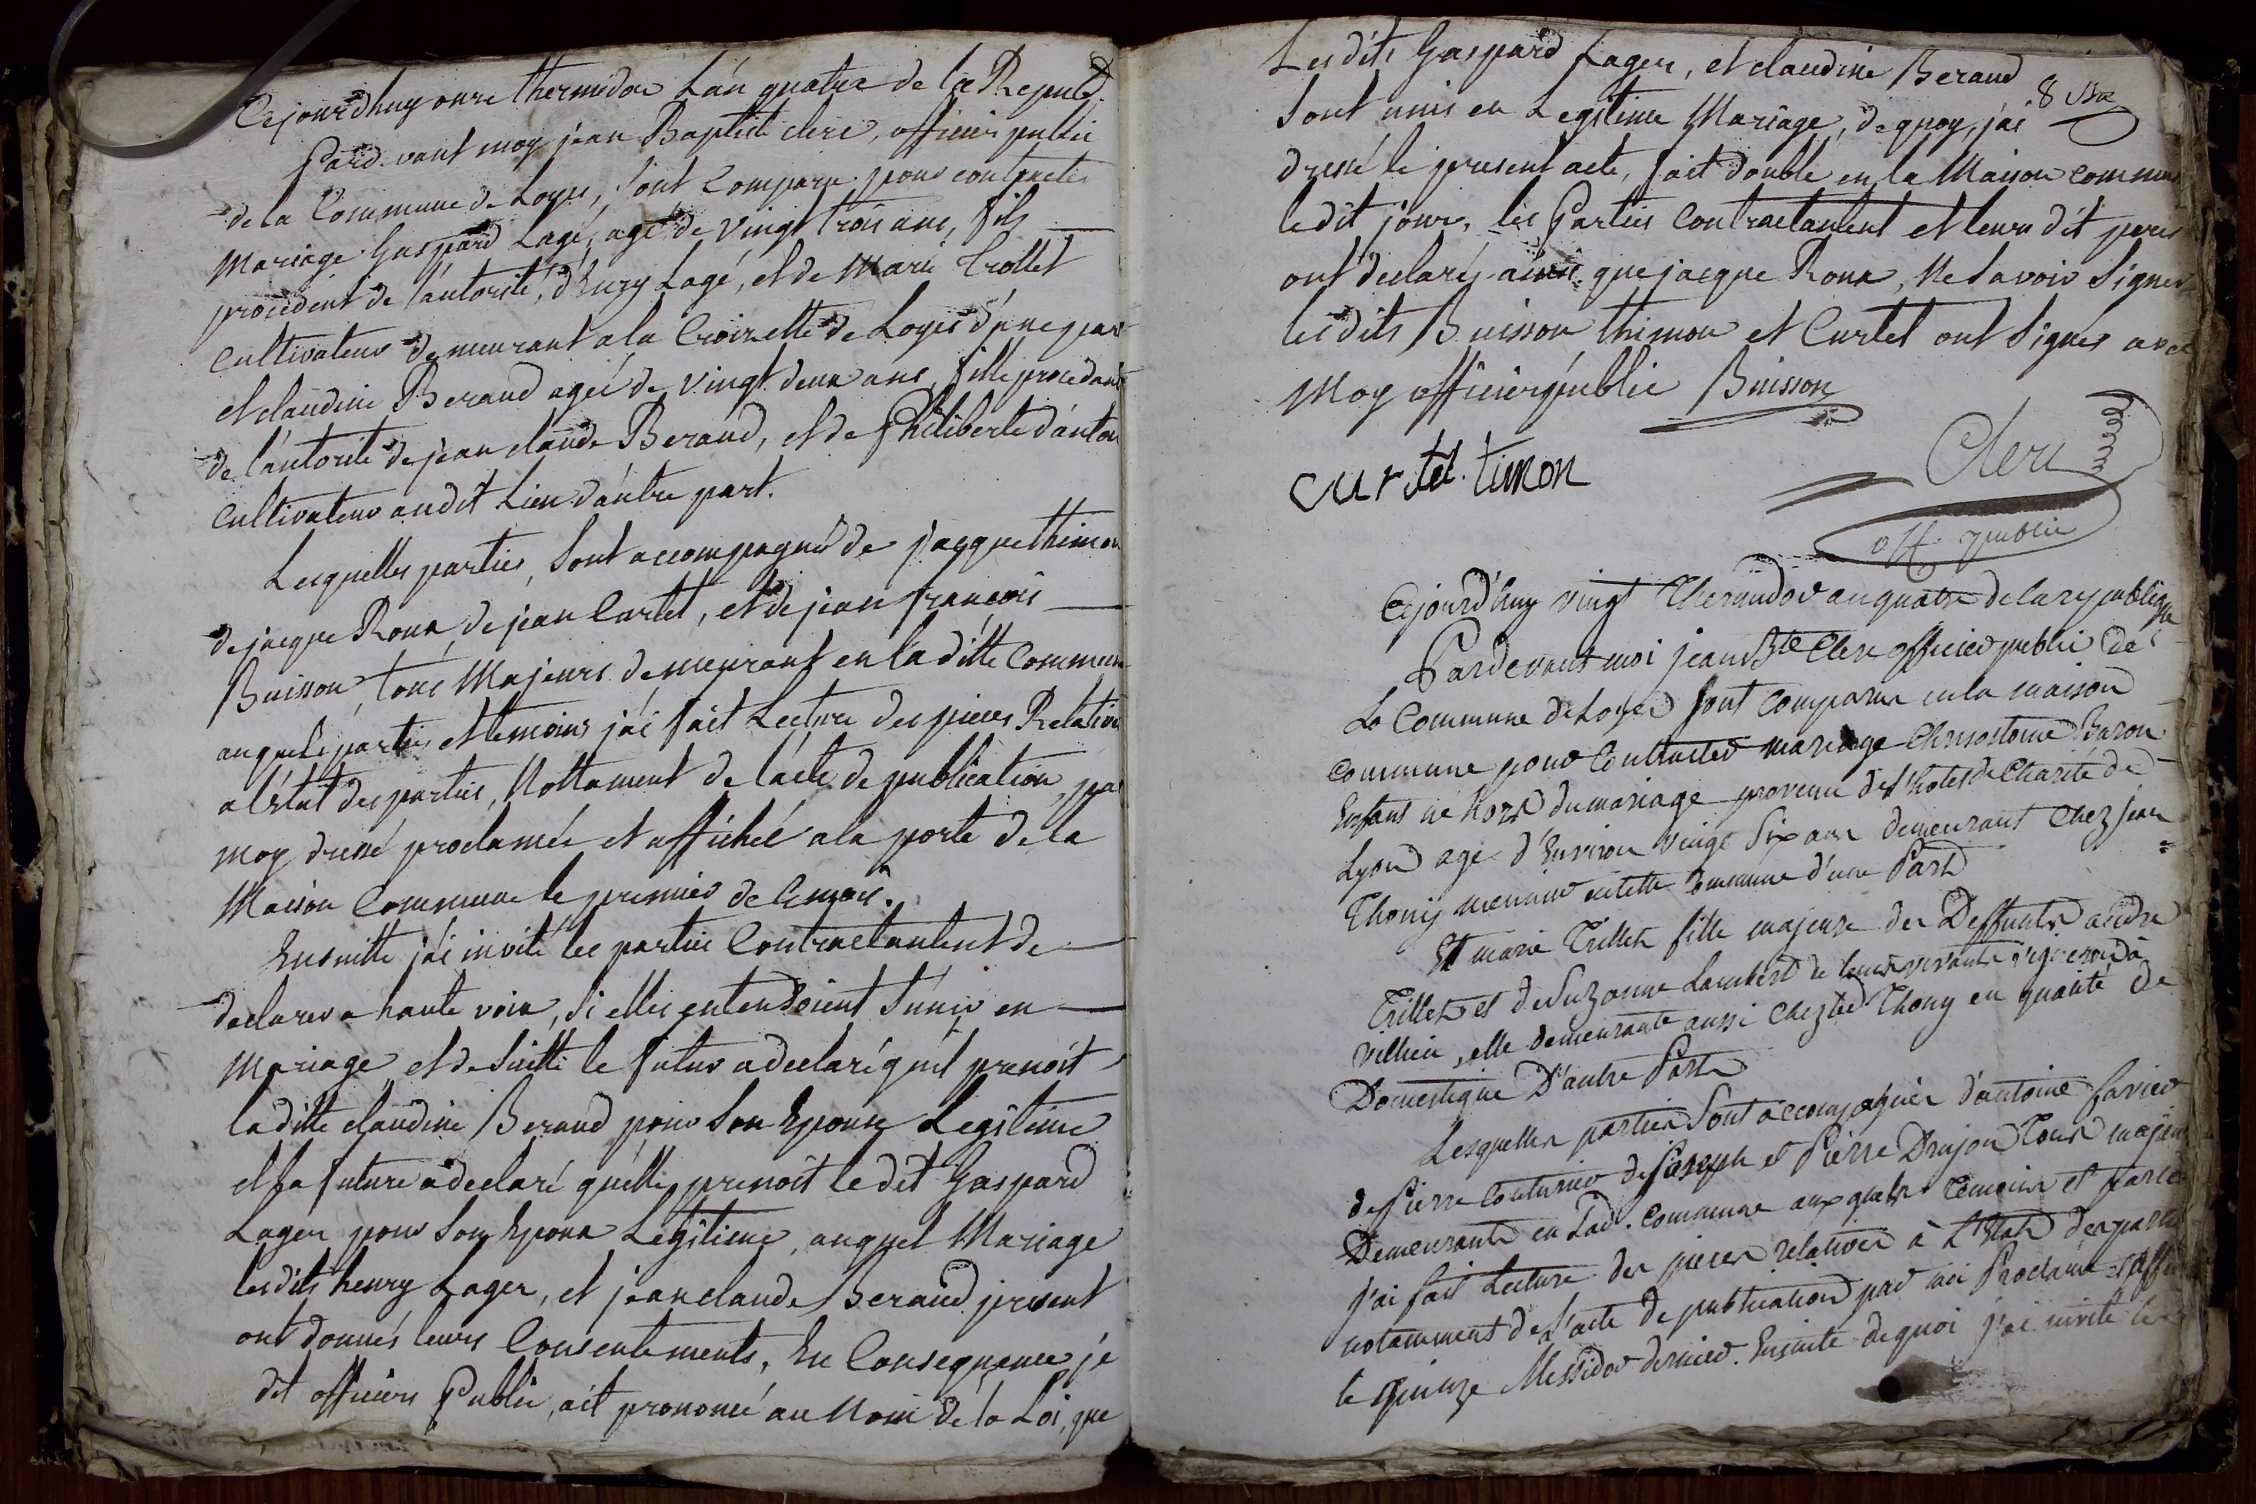 Cejourd'huy onze thermidor L'an quatre de la Repub.
Pard. vant moy jean Baptist clerc, officier public
de la Commune de Loyes, sont Comparu pour contracter
Mariage Gaspard Lagé, agé de vingt trois ans, fils
procedent de l'autorité, d'henry Lagé, et de Marie Trollet
Cultivateur demeurant a la Croizette de Loyes d'une part
et claudine Beraud ageé de vingt deux ans, fille procedant
de l'autorité de jean claude Beraud, et de Philiberte d'anton
Cultivateur audit Lieu d'autre part.
Lesquelles parties, Sont accompagnés de jacque thimon
de jacque Roux, de jean Curtet, et de jean françois
Buisson, tous Majeurs demeurant en la ditte Commune
auquels parties et temoins j'ai fait Lecture des pieces Relative
a l'état des parties, Nottament de l'acte de publication, par
moy dressé proclamée et affichée a la porte de la
Maison Commune le premier de ce mois.
Ensuitte j'ai invité les parties Contractantent de
declarer a haute voix, si elles entendoient s'unir en
Mariage, et de suitte le futur a declaré qu'il prenoit
la ditte claudine Beraud pour son Epouse Legitime
et la future a declaré quelle prenoit ledit Gaspard
Lager pour son Epoux Legitime, auquel Mariage
lesdits henry Lager, et jean claude Beraud present
ont donnés leurs Consentements, En Consequence je
dit officier Public, ait prononcé au Nom de la Loi, que
Lesdits Gaspard Lager, et claudine Beraud
Sont unis en Legitime Mariage, de quoy, j'ai
8
dressé le present acte, fait double en la Maison commune
ledit jour, les Parties Contractantent et leurs dit peres
ont declarés ainsi que jacque Roux, Ne savoir signer
lesdits Buisson thimon et Curtet ont signés avec
Moy officier public Buisson
curtet. timon
Clerc
off. public
Cejourd'huy vingt Thermidor an quatre de la republique
Pardevant moi jean Bte Clerc officier public de
La Commune de Loyes sont comparus en la maison
commune pour Contracter mariage Chrisostome Baron
Enfans né hors du mariage provenu de l'hotel de Charité de
Lyon agé d'Environ vingt six ans demeurant chez jean
Thony meunier en cette Commune d'une Part
Et marie Trillet fille majeure des Deffunts andré
Trillet et de Suzanne Lambert de leurs vivants
Villieu, elle demeurante aussi chez led. Thony en qualité de
Domestique D'autre Part
Lesquelles parties sont accompagnées d'antoine favier
de Pierre Couturier de Joseph et Pierre Drujon Tous majeurs
Demeurants en Lad. Commune auxquels Temoins et parties
j'ai fait Lecture des pieces relatives à L'Etat des parties
notamment de L'acte de publication par moi Proclamé et affiché
le quinze Messidor dernier. Ensuite de quoi j'ai invité les